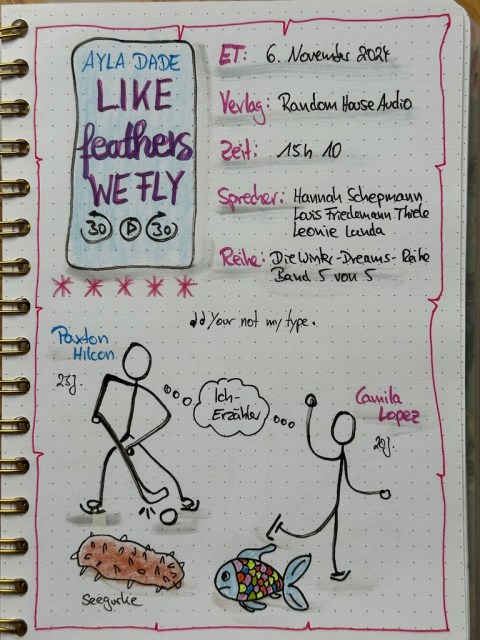 AYLA DADE
LIKE
feathers
WE FLY
30 30
ET: 6. November 2024
Verlag: Random House Audio
Zeit: 15h 10
Sprecher: Hannah Schepmann
Lars Friedemann Thiele
Leonie Landa
Reihe: Die Winter-Dreams-Reihe
Band 5 von 5
Your not my type.
Paxton
Hilcon
23J.
Ich-
Erzähler
Camila
Lopez
20J.
Seegurke